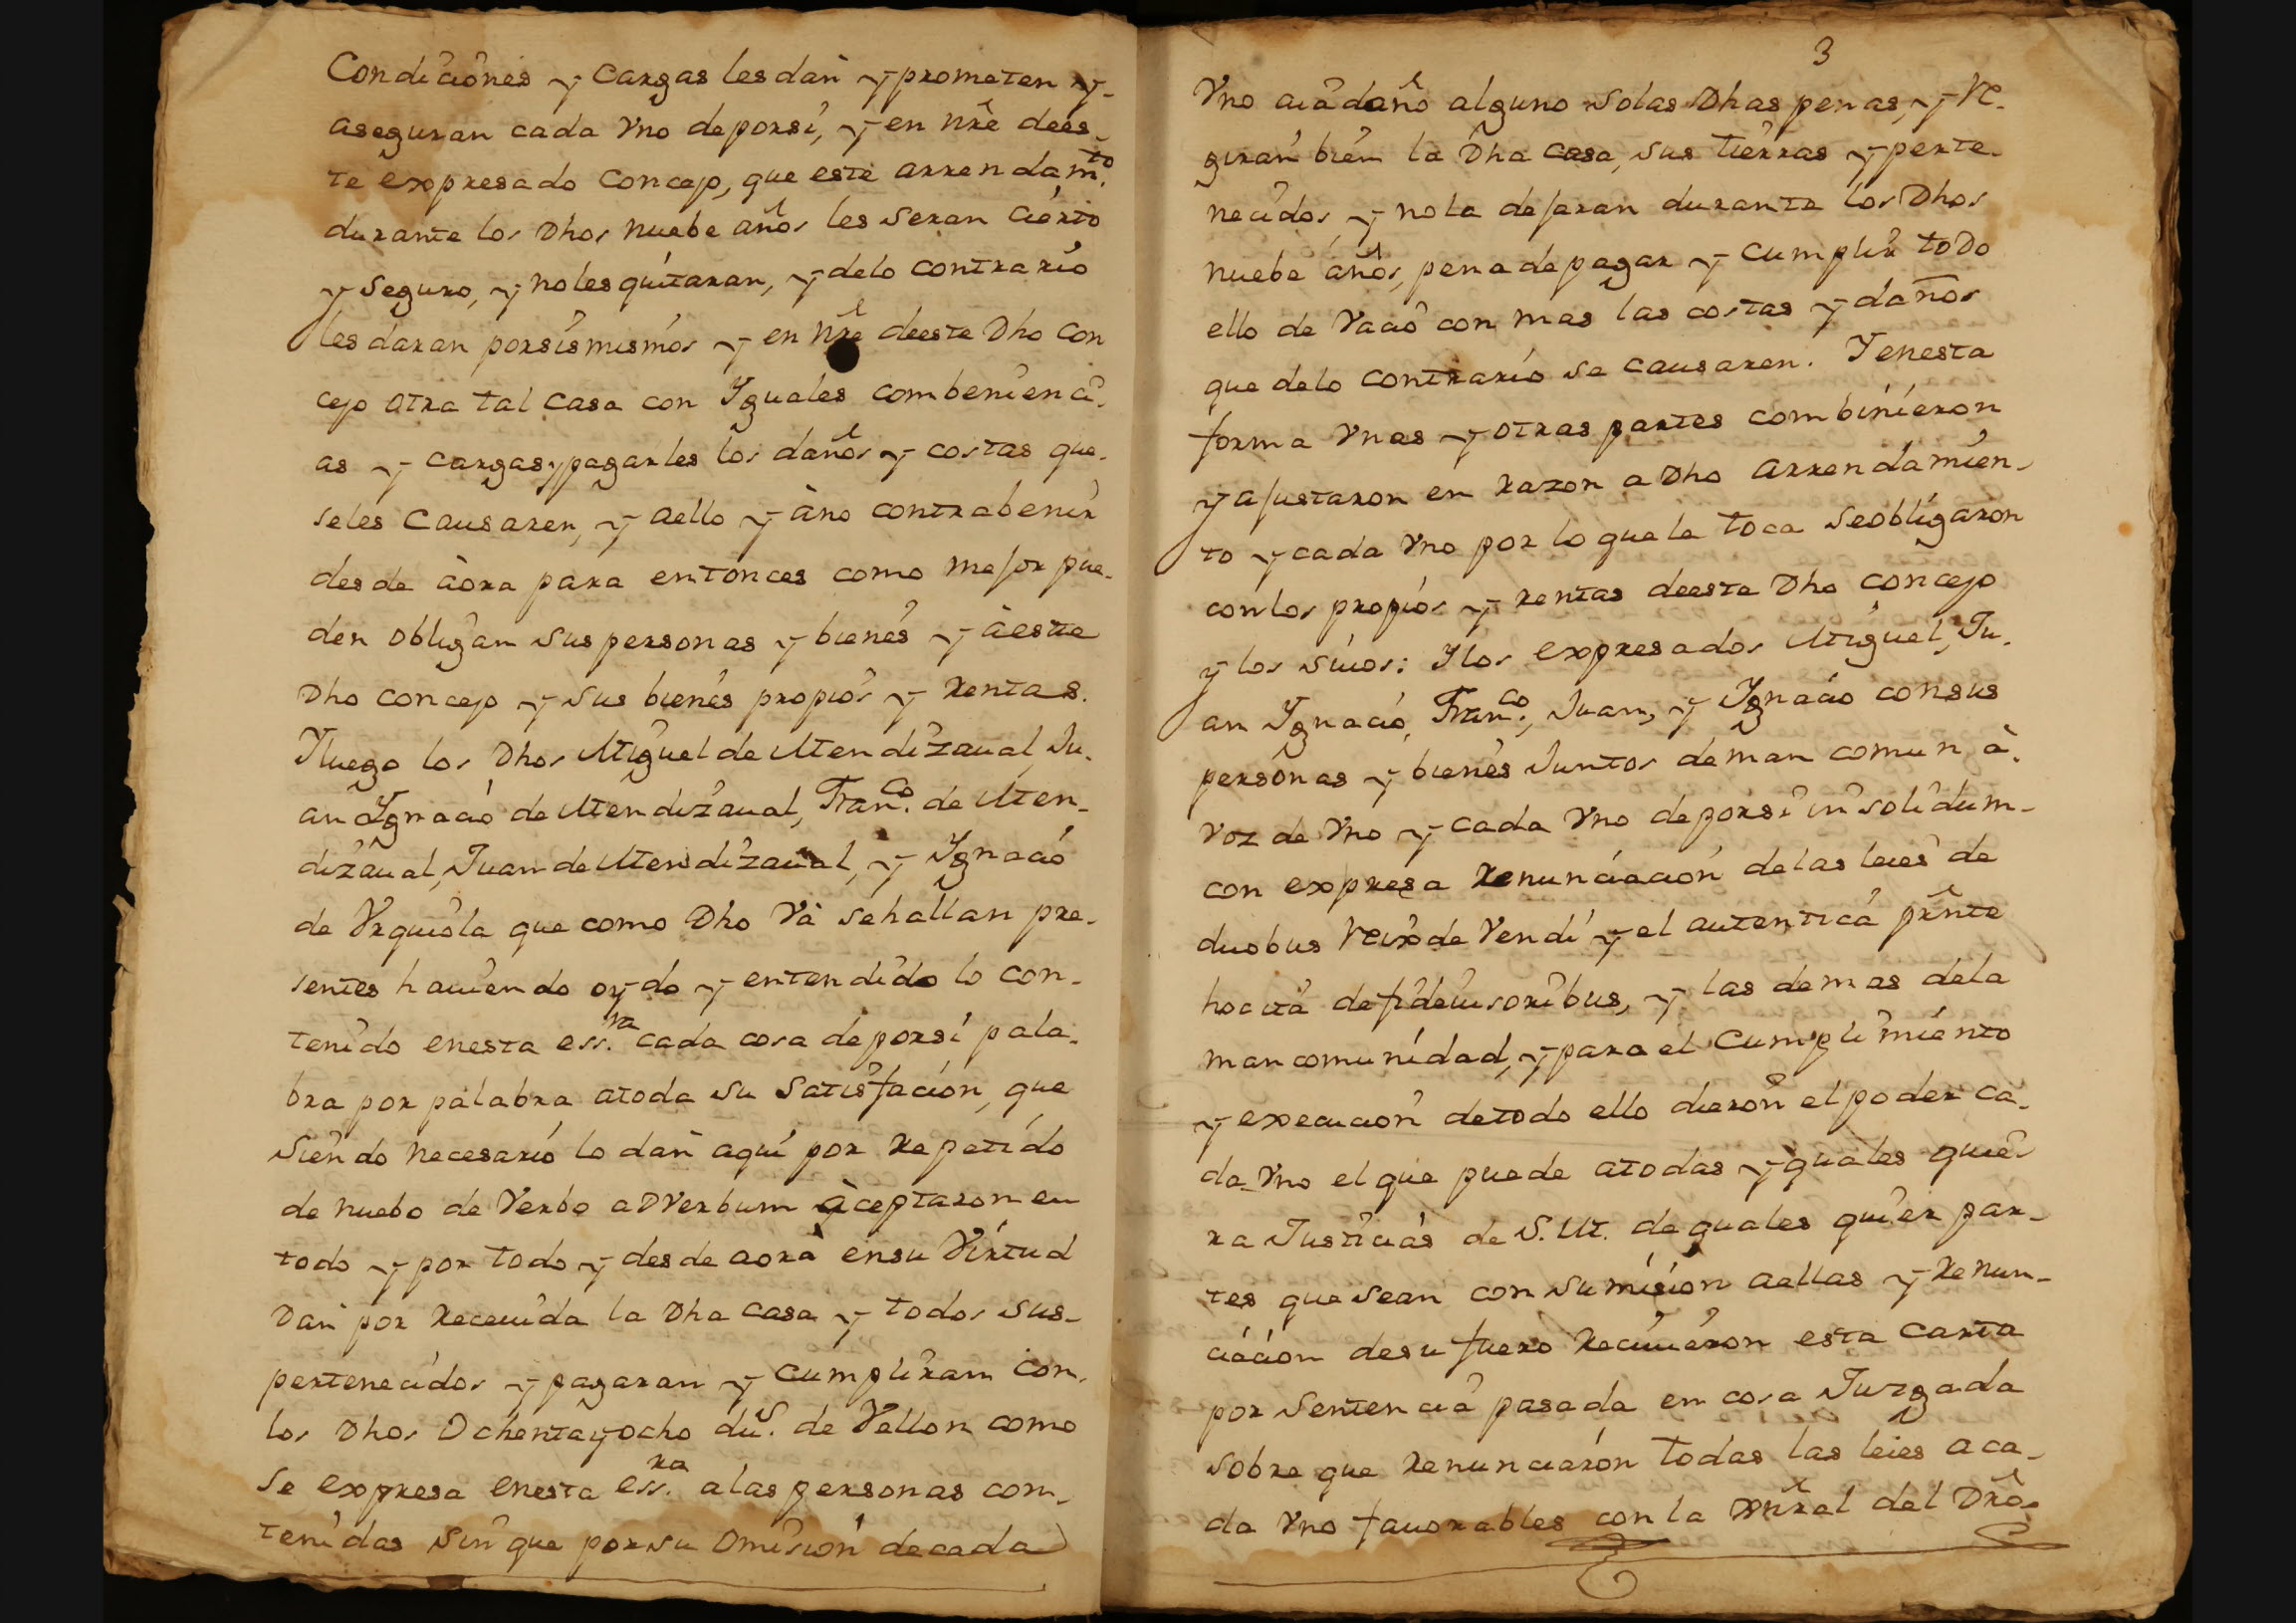 Condiciones y cargas les dan y prometen y-
aseguran cada Vno deporsi, y en nrẽ dees-
te expresado Concejo, que este arrendamto.
durante los Dhos nuebe años les seran cierto
y seguro, y noles quitaran, y delo contrario
les daran porsismismos y en nrẽ deeste Dho con
cejo otra tal casa con Yguales combenienci-
as y cargas, y pagarles los daños y costas que-
seles causaren, y aello y àno contrabenir
desde àora para entonces como mejor pue-
den obligan sus personas y bienes y àeste
Dho concejo y sus bienes propios y rentas.
Yluego los Dhos Miguel de Mendizaual, Ju-
an Ygnacio de Mendizaual, Franco. de Men-
dizaual, Juan de Mendizaual, y Ygnacio
de Vrquiola que como Dho Và sehallan pre-
sentes hauiendo oydo y entendido lo con-
tenido enesta essra. cada cosa deporsi pala-
bra por palabra atoda su satisfacion, que
siendo necesario lo dan aqui por repetido
de nuebo de Verbo aDVerbum àceptaron en
todo y por todo y desde aora ensu Virtud
Dan por receuida la Dha casa y todos sus-
pertenecidos y pagaran y cumpliran con-
los Dhos Ochentayocho dus. de Vellon como
se expresa enesta essra. alas personas con-
tenidas sin que porsu Omision decada
3
Vno aiadaño alguno solas Dhas penas, y Re-
giran bien la Dha casa, sus tierras y perte-
necidos, y nola dejaran durante los Dhos
nuebe años, pena depagar y cumplir todo
ello de Vacio con mas las costas y daños
que delo contrario se causaren. Yenesta
forma Vnas y otras partes combinieron
y ajustaron en razon a Dho arrendamien-
to y cada Vno por lo quele toca seobligaron
conlos propios y rentas deeste Dho concejo
y los suios: Ylos expresados Miguel, Ju-
an Ygnacio, Franco., Juan, y Ygnacio consus
personas y bienes Juntos deman comun à-
voz de Vno y cada Vno deporsi insolidum-
con expresa renunciacion delas leies de
duobus reix de Vendi y el autentica prẽnte
hocita defideiusoribus, y las demas dela
mancomunidad, y para el cumplimiento
y execucion detodo ello dieron el poder ca-
da Vno el que puede atodas yquales quie-
ra Justicias de S.M. de quales quier par-
tes que sean con sumision aellas y renun-
ciacion desu fuero reciuieron esta carta
por sentencia pasada en cosa Juzgada
sobre que renunciaron todas las leies aca-
da Vno fauorables con la xnẽral del Drõ.